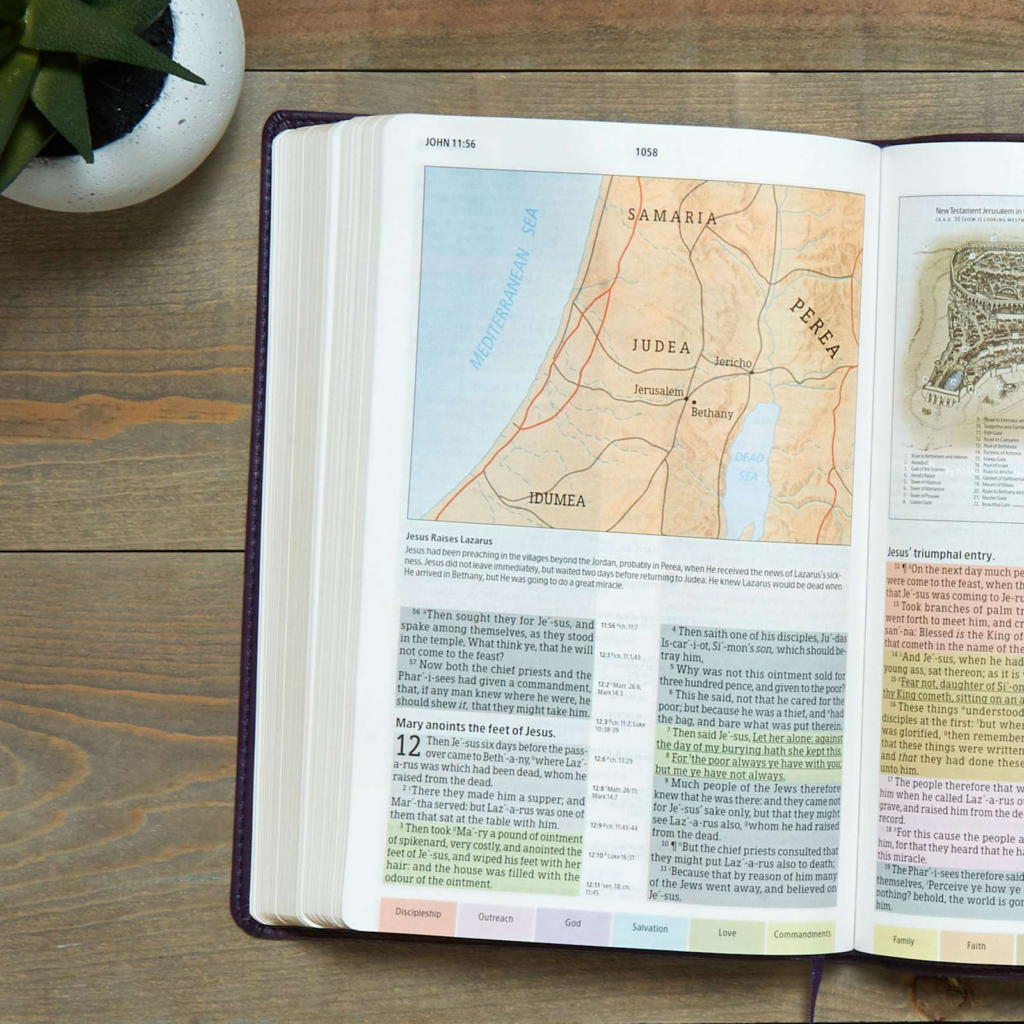 JOHN 11:56
1058
SAMARIA
MEDITERRANEAN SEA
PEREA
JUDEA
Jericho
Jerusalem
Bethany
DEAD
SEA
IDUMEA
Jesus Raises Lazarus
Jesus had been preaching in the villages beyond the Jordan, probably in Perea, when He received the news of Lazarus's sick-
ness. Jesus did not leave immediately, but waited two days before returning to Judea. He knew Lazarus would be dead when
He arrived in Bethany, but He was going to do a great miracle.
56 Then sought they for Je´-sus, and
spake among themselves, as they stood
in the temple, What think ye, that he will
not come to the feast?
57 Now both the chief priests and the
Phar´-i-sees had given a commandment,
that, if any man knew where he were, he
should shew it, that they might take him.
Mary anoints the feet of Jesus.
12 Then Je´-sus six days before the pass-
over came to Beth´-a-ny, where Laz´-
a-rus was which had been dead, whom he
raised from the dead.
2 There they made him a supper; and
Mar´-tha served: but Laz´-a-rus was one of
them that sat at the table with him.
3 Then took Ma´-ry a pound of ointment
of spikenard, very costly, and anointed the
feet of Je´-sus, and wiped his feet with her
hair: and the house was filled with the
odour of the ointment.
11:56 ch. 11:7
12:1 ch. 11:1,43
12:2 Matt. 26:6;
Mark 14:3
12:3 ch. 11:2; Luke
10:38-39
12:6 ch. 13:29
12:8 Matt. 26:11;
Mark 14:7
12:9 ch. 11:43-44
12:10 Luke 16:31
12:11 ver. 18, ch.
11:45
4 Then saith one of his disciples, Ju´-das
Is-car´-i-ot, Si´-mon's son, which should be-
tray him,
5 Why was not this ointment sold for
three hundred pence, and given to the poor?
6 This he said, not that he cared for the
poor; but because he was a thief, and had
the bag, and bare what was put therein.
7 Then said Je´-sus, Let her alone: against
the day of my burying hath she kept this.
8 For the poor always ye have with you;
but me ye have not always.
9 Much people of the Jews therefore
knew that he was there: and they came not
for Je´-sus' sake only, but that they might
see Laz´-a-rus also, whom he had raised
from the dead.
10 ¶ But the chief priests consulted that
they might put Laz´-a-rus also to death;
11 Because that by reason of him many
of the Jews went away, and believed on
Je´-sus.
Discipleship
Outreach
God
Salvation
Love
Commandments
New Testament Jerusalem in
Jesus' triumphal entry.
12 ¶ On the next day much pe
were come to the feast, when th
that Je´-sus was coming to Je-ru
13 Took branches of palm tr
went forth to meet him, and cr
san´-na: Blessed is the King of
that cometh in the name of the
14 And Je´-sus, when he had
young ass, sat thereon; as it is
15 Fear not, daughter of Si´-on
thy King cometh, sitting on an a
16 These things understood
disciples at the first: but when
was glorified, then remember
that these things were written
and that they had done these
unto him.
17 The people therefore that w
him when he called Laz´-a-rus o
grave, and raised him from the de
record.
18 For this cause the people a
him, for that they heard that he ha
this miracle.
19 The Phar´-i-sees therefore said
themselves, Perceive ye how ye
nothing? behold, the world is gon
him.
Family
Faith